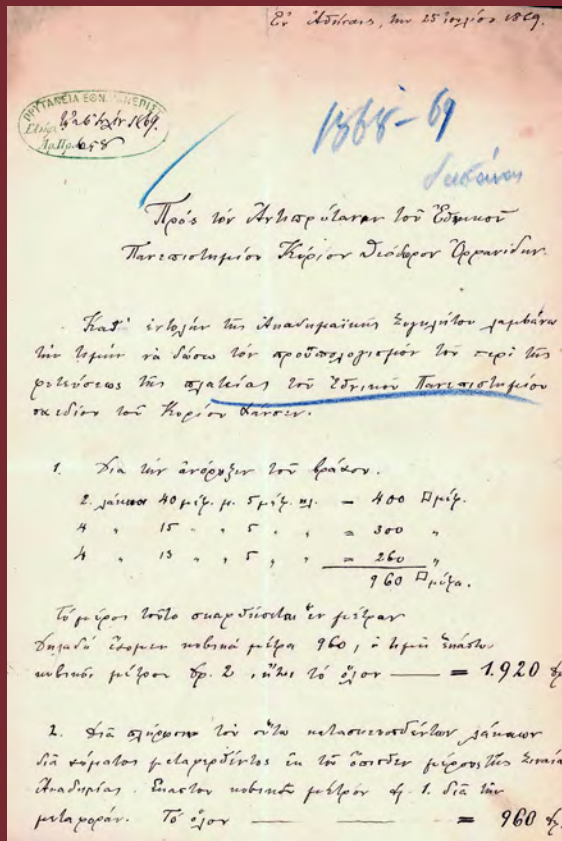 Ἐν Ἀθήναις, την 25 ἰουλίου 1869.
ΠΡΥΤΑΝΕΙΑ ΕΘΝ. ΠΑΝΕΠΙΣΤ
1869.
Ἀρ.Πρ. 658
1868-69
Πρὸς τὸν Ἀντιπρύτανιν τοῦ Ἐθνικοῦ
Πανεπιστημίου Κύριον Θεόδωρον Ὀρφανίδην.
Κατ' ἐντολὴν τῆς Ἀκαδημαϊκῆς Συγκλήτου λαμβάνω
τὴν τιμὴν νὰ δώσω τὸν προϋπολογισμὸν τοῦ περὶ τῆς
φυτεύσεως τῆς πλατείας τοῦ Ἐθνικοῦ Πανεπιστημίου
σχεδίου τοῦ Κυρίου Χάνσεν.
1. Διὰ τὴν ἀνόρυξιν τοῦ βράχου.
2. λάκκοι 40 μέτρ. μ. 5 μέτρ. πλ. = 400 □ μέτρ.
4 " 15 " " 5 " " = 300 "
4 " 13 " " 5 " " = 260 "
960 □ μέτρα.
Τὸ μέρος τοῦτο σκαφθήσεται ἓν μέτρον
δηλαδὴ ἔχομεν κυβικὰ μέτρα 960, ἡ τιμὴ ἑκάστου
κυβικοῦ μέτρου δρ. 2, ἤτοι τὸ ὅλον — = 1.920 δρ
2. Διὰ πλήρωσιν τῶν οὕτω κατασκευασθέντων λάκκων
διὰ χώματος μεταφερθέντος ἐκ τοῦ ὄπισθεν μέρους τῆς Σιναίας
Ἀκαδημίας. Ἕκαστον κυβικὸν μέτρον δρ. 1. διὰ τὴν
μεταφοράν. Τὸ ὅλον — — — = 960 δρ.